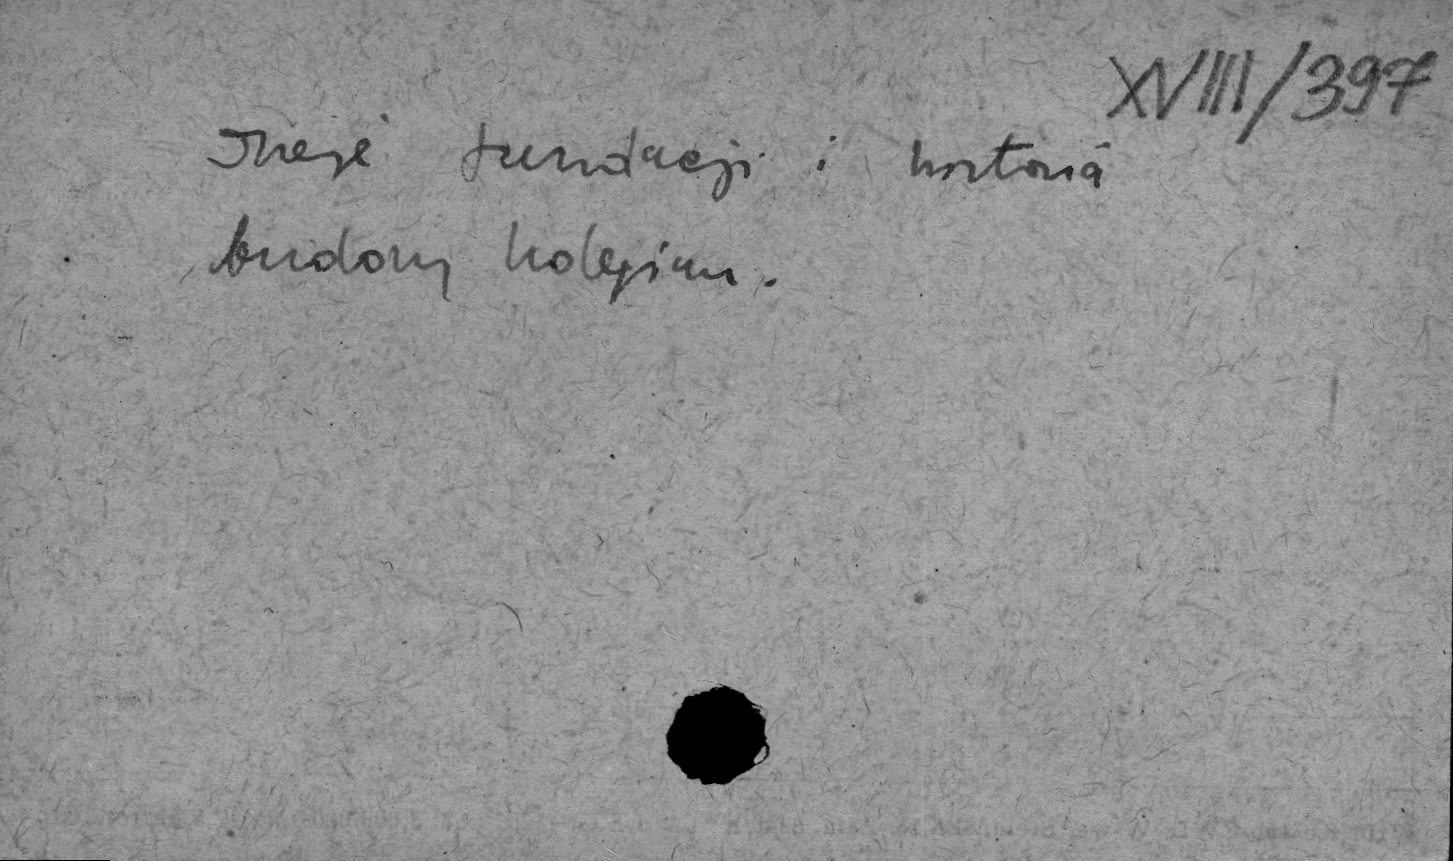 XVIII/397
Treść fundacji i historia
budowy kolegium.